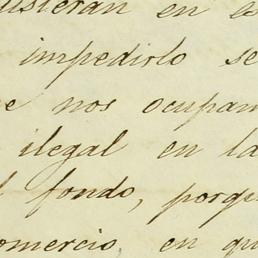 usieran en es
impedirlo se
e nos ocupam
ilegal en la
l fondo, porqu
omercio, en qu